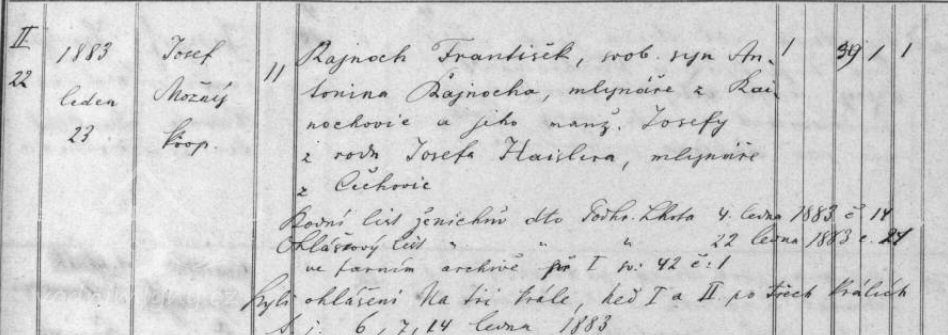 II 1883 Josef 11 Rajnoch František, svob. syn An- 1 39 1 1
22 leden Možný tonína Rajnocha, mlynáře z Rai-
23 koop. nochovic a jeho manž. Josefy
z rodu Josefa Haislera, mlynáře
z Čechovic
Rodní list ženichův dto Podhr. Lhota 4. ledna 1883 č 14
Ohláškový list " " " 22 ledna 1883 č. 24
ve farním archivě I sv: 42 č: 1
Byli ohlášeni na tři krále, ned I a II po třech králích
t. j. 6, 7, 14 ledna 1883